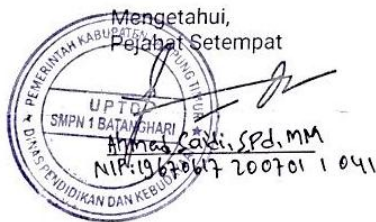 Mengetahui,
Pejabat Setempat
PEMERINTAH KABUPATEN LAMPUNG TIMUR
UPTD
SMPN 1 BATANGHARI
DINAS PENDIDIKAN DAN KEBUD
Ahmad Saidi, SPd, MM
NIP: 19670617 200701 1 041